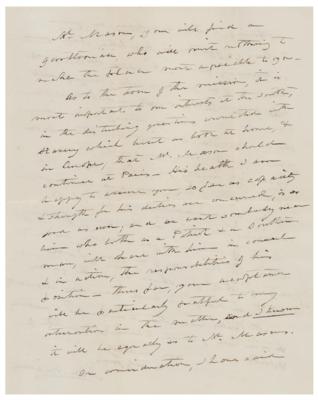 Mr. Mason, you will find a
gentleman who will omit nothing to
make the place more agreeable to you.
As to the term of the mission, it is
most important to our interests at the South,
in the disturbing questions connected with
Slavery which beset us both at home, &
in Europe, that Mr. Mason should
continue at Paris - His health I am
happy to assure you so far as capacity
& strength for his duties are concerned, is as
good as ever, and we want somebody near
him who both as a and a Southern
man, will share with him in council
& in action, the responsibilities of his
position - therefore, your acceptance
will be particularly grateful to my
in the matter, and I know
it will be equally so to Mr. Mason.
On consideration, I have said